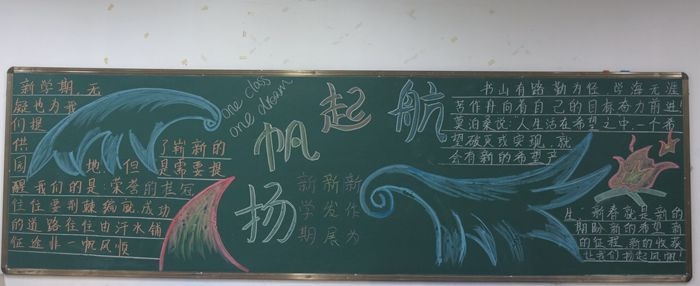 新学期,无
疑也为我
们提
供 了崭新的
园地,但是需要提
醒我们的是:荣誉的花冠
往往要荆棘编就成功
的道路往往由汗水铺
征途非一帆风顺
one class
one dream
扬帆起航
新学期
新发展
新作为
书山有路勤为径,学海无涯
苦作舟向着自己的目标奋力前进!
莫泊桑说"人生活在希望之中一个希
望破灭或实现,就
会有新的希望产
生,"新春就是新的
期盼 新的希望 新
的征程 新的收获
让我们扬起风帆!